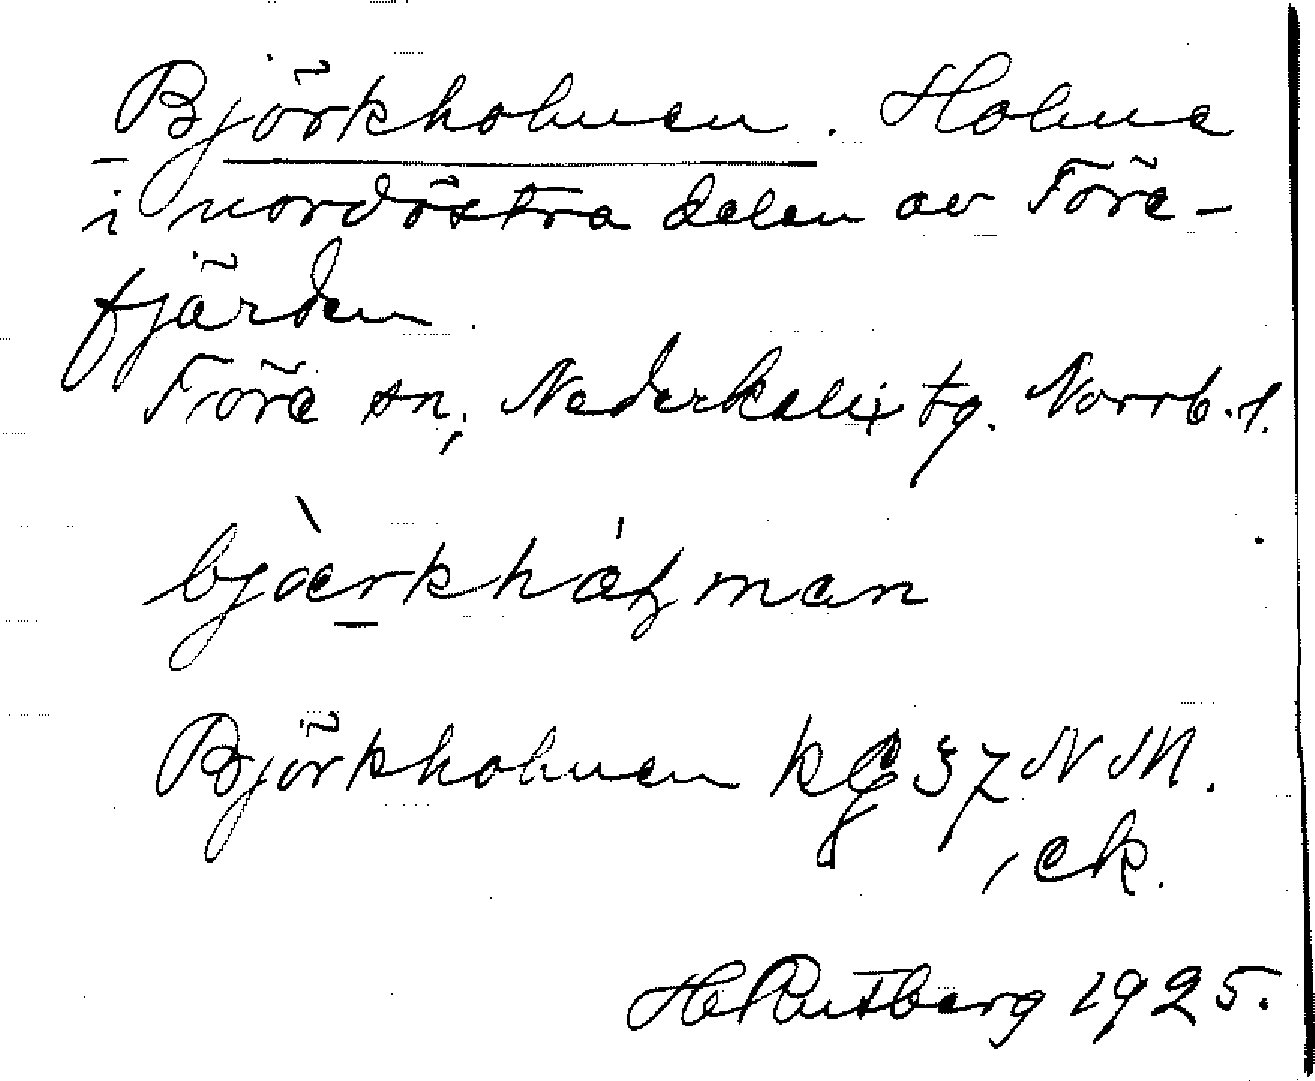 Björkholmen. Holme
i nordöstra delen av Töre-
fjärden.
Töre sn, Nederkalix tg. Norrb. l.
bjærkhålman
Björkholmen kg 37 N M.
, ek.
H Rutberg 1925.